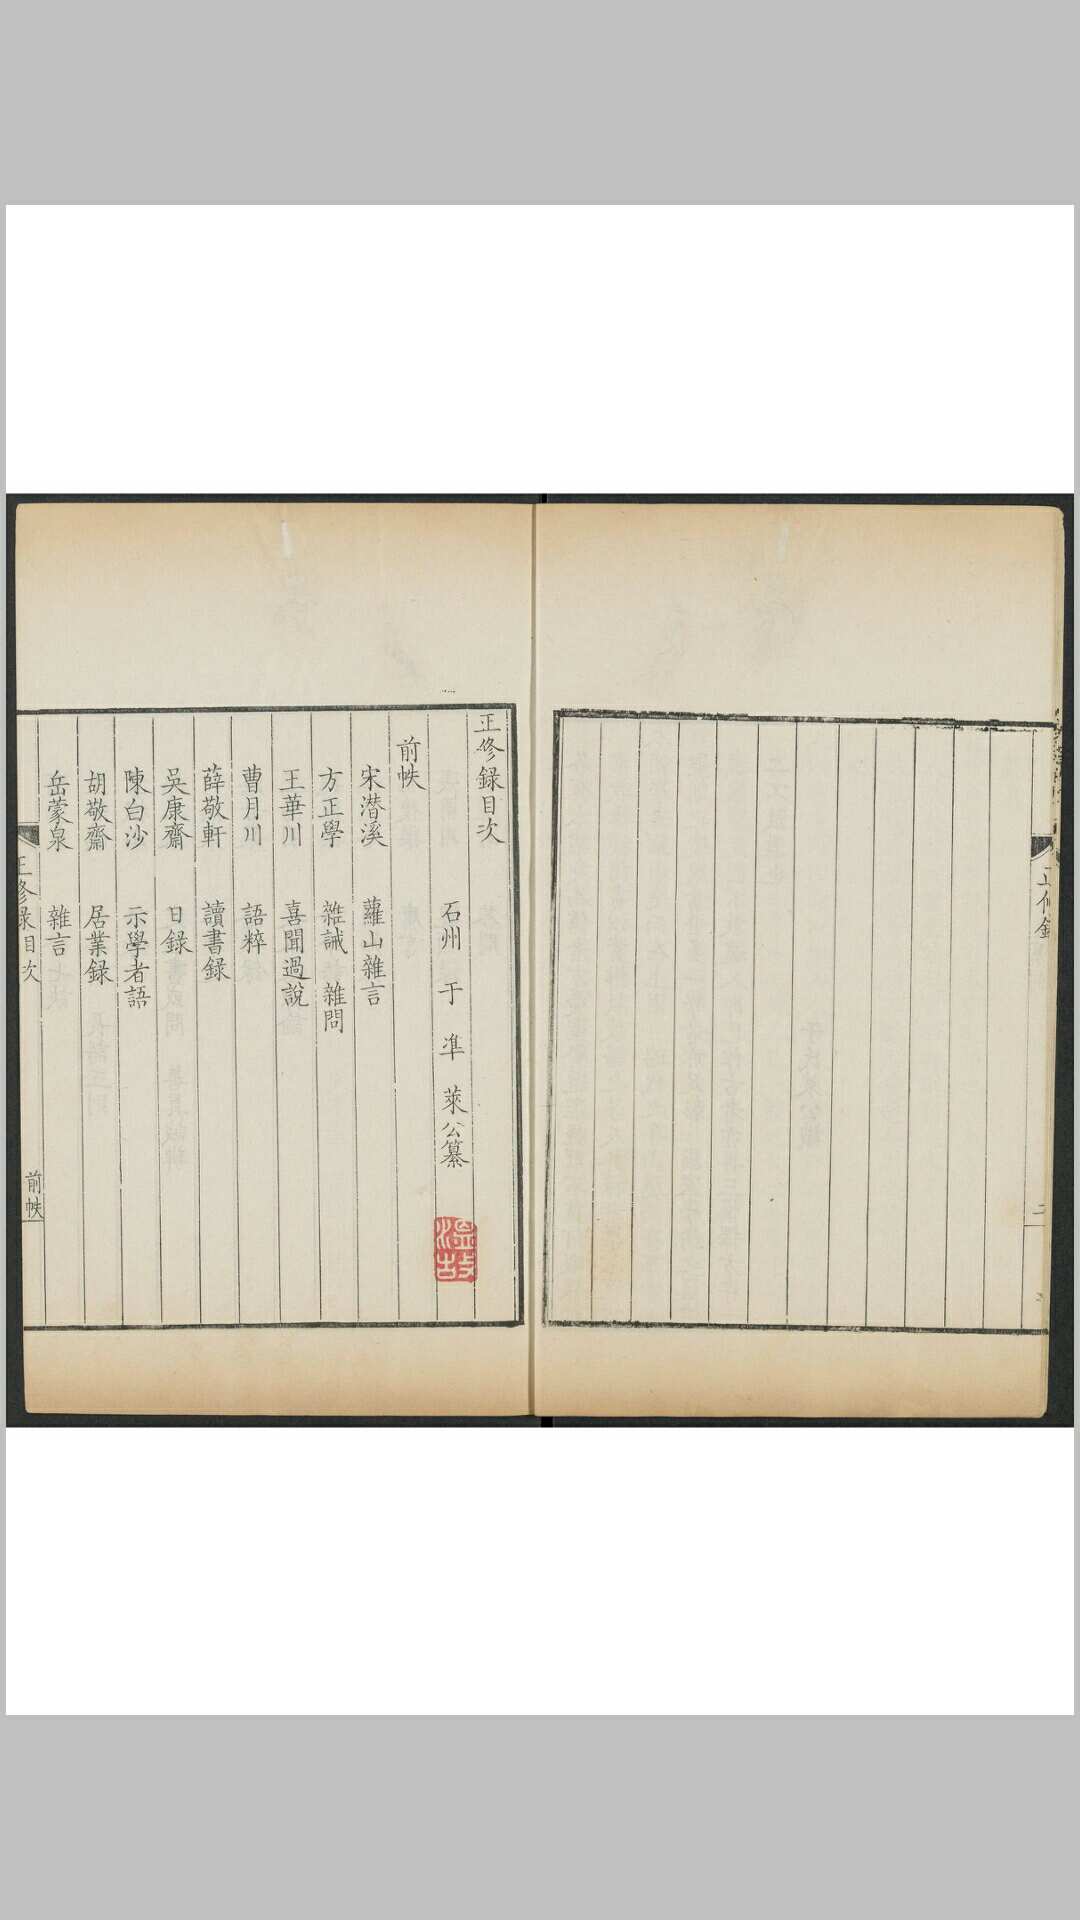 正修錄
二
正修錄目次
石州 于準萊公纂
溫故
前帙
宋潛溪 蘿山雜言
方正學 雜誡 雜問
王華川 喜聞過說
曹月川 語粹
薛敬軒 讀書錄
吳康齋 日錄
陳白沙 示學者語
胡敬齋 居業錄
岳蒙泉 雜言
正修錄目次
前帙